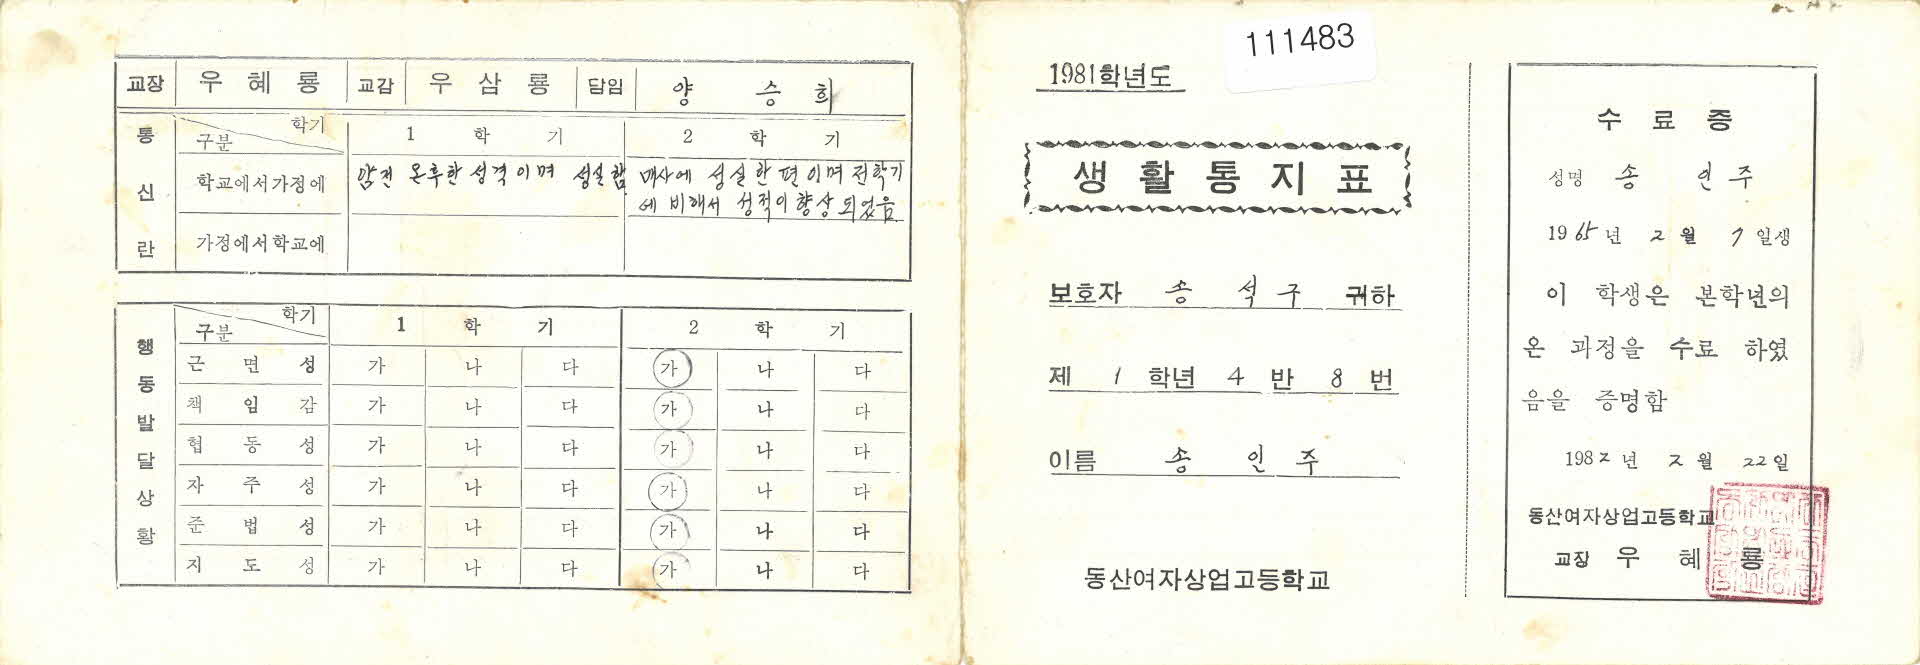 교장 우혜룡 교감 우삼룡 담임 양승희
통신란
학기
구분
1 학기 2 학기
학교에서가정에 얌전 온후한 성격이며 성실함. 매사에 성실한편이며 전학기
에 비해서 성적이향상되었음
가정에서학교에
행동발달상황
학기
구분
1 학기 2 학기
근면성 가 나 다 가 나 다
책임감 가 나 다 가 나 다
협동성 가 나 다 가 나 다
자주성 가 나 다 가 나 다
준법성 가 나 다 가 나 다
지도성 가 나 다 가 나 다
111483
1981학년도
생활통지표
보호자 송석구 귀하
제 1 학년 4 반 8 번
이름 송인주
동산여자상업고등학교
수료증
성명 송인주
1965년 2월 7일생
이 학생은 본학년의
온 과정을 수료 하였
음을 증명함
1982년 2월 22일
동산여자상업고등학교
교장 우혜룡